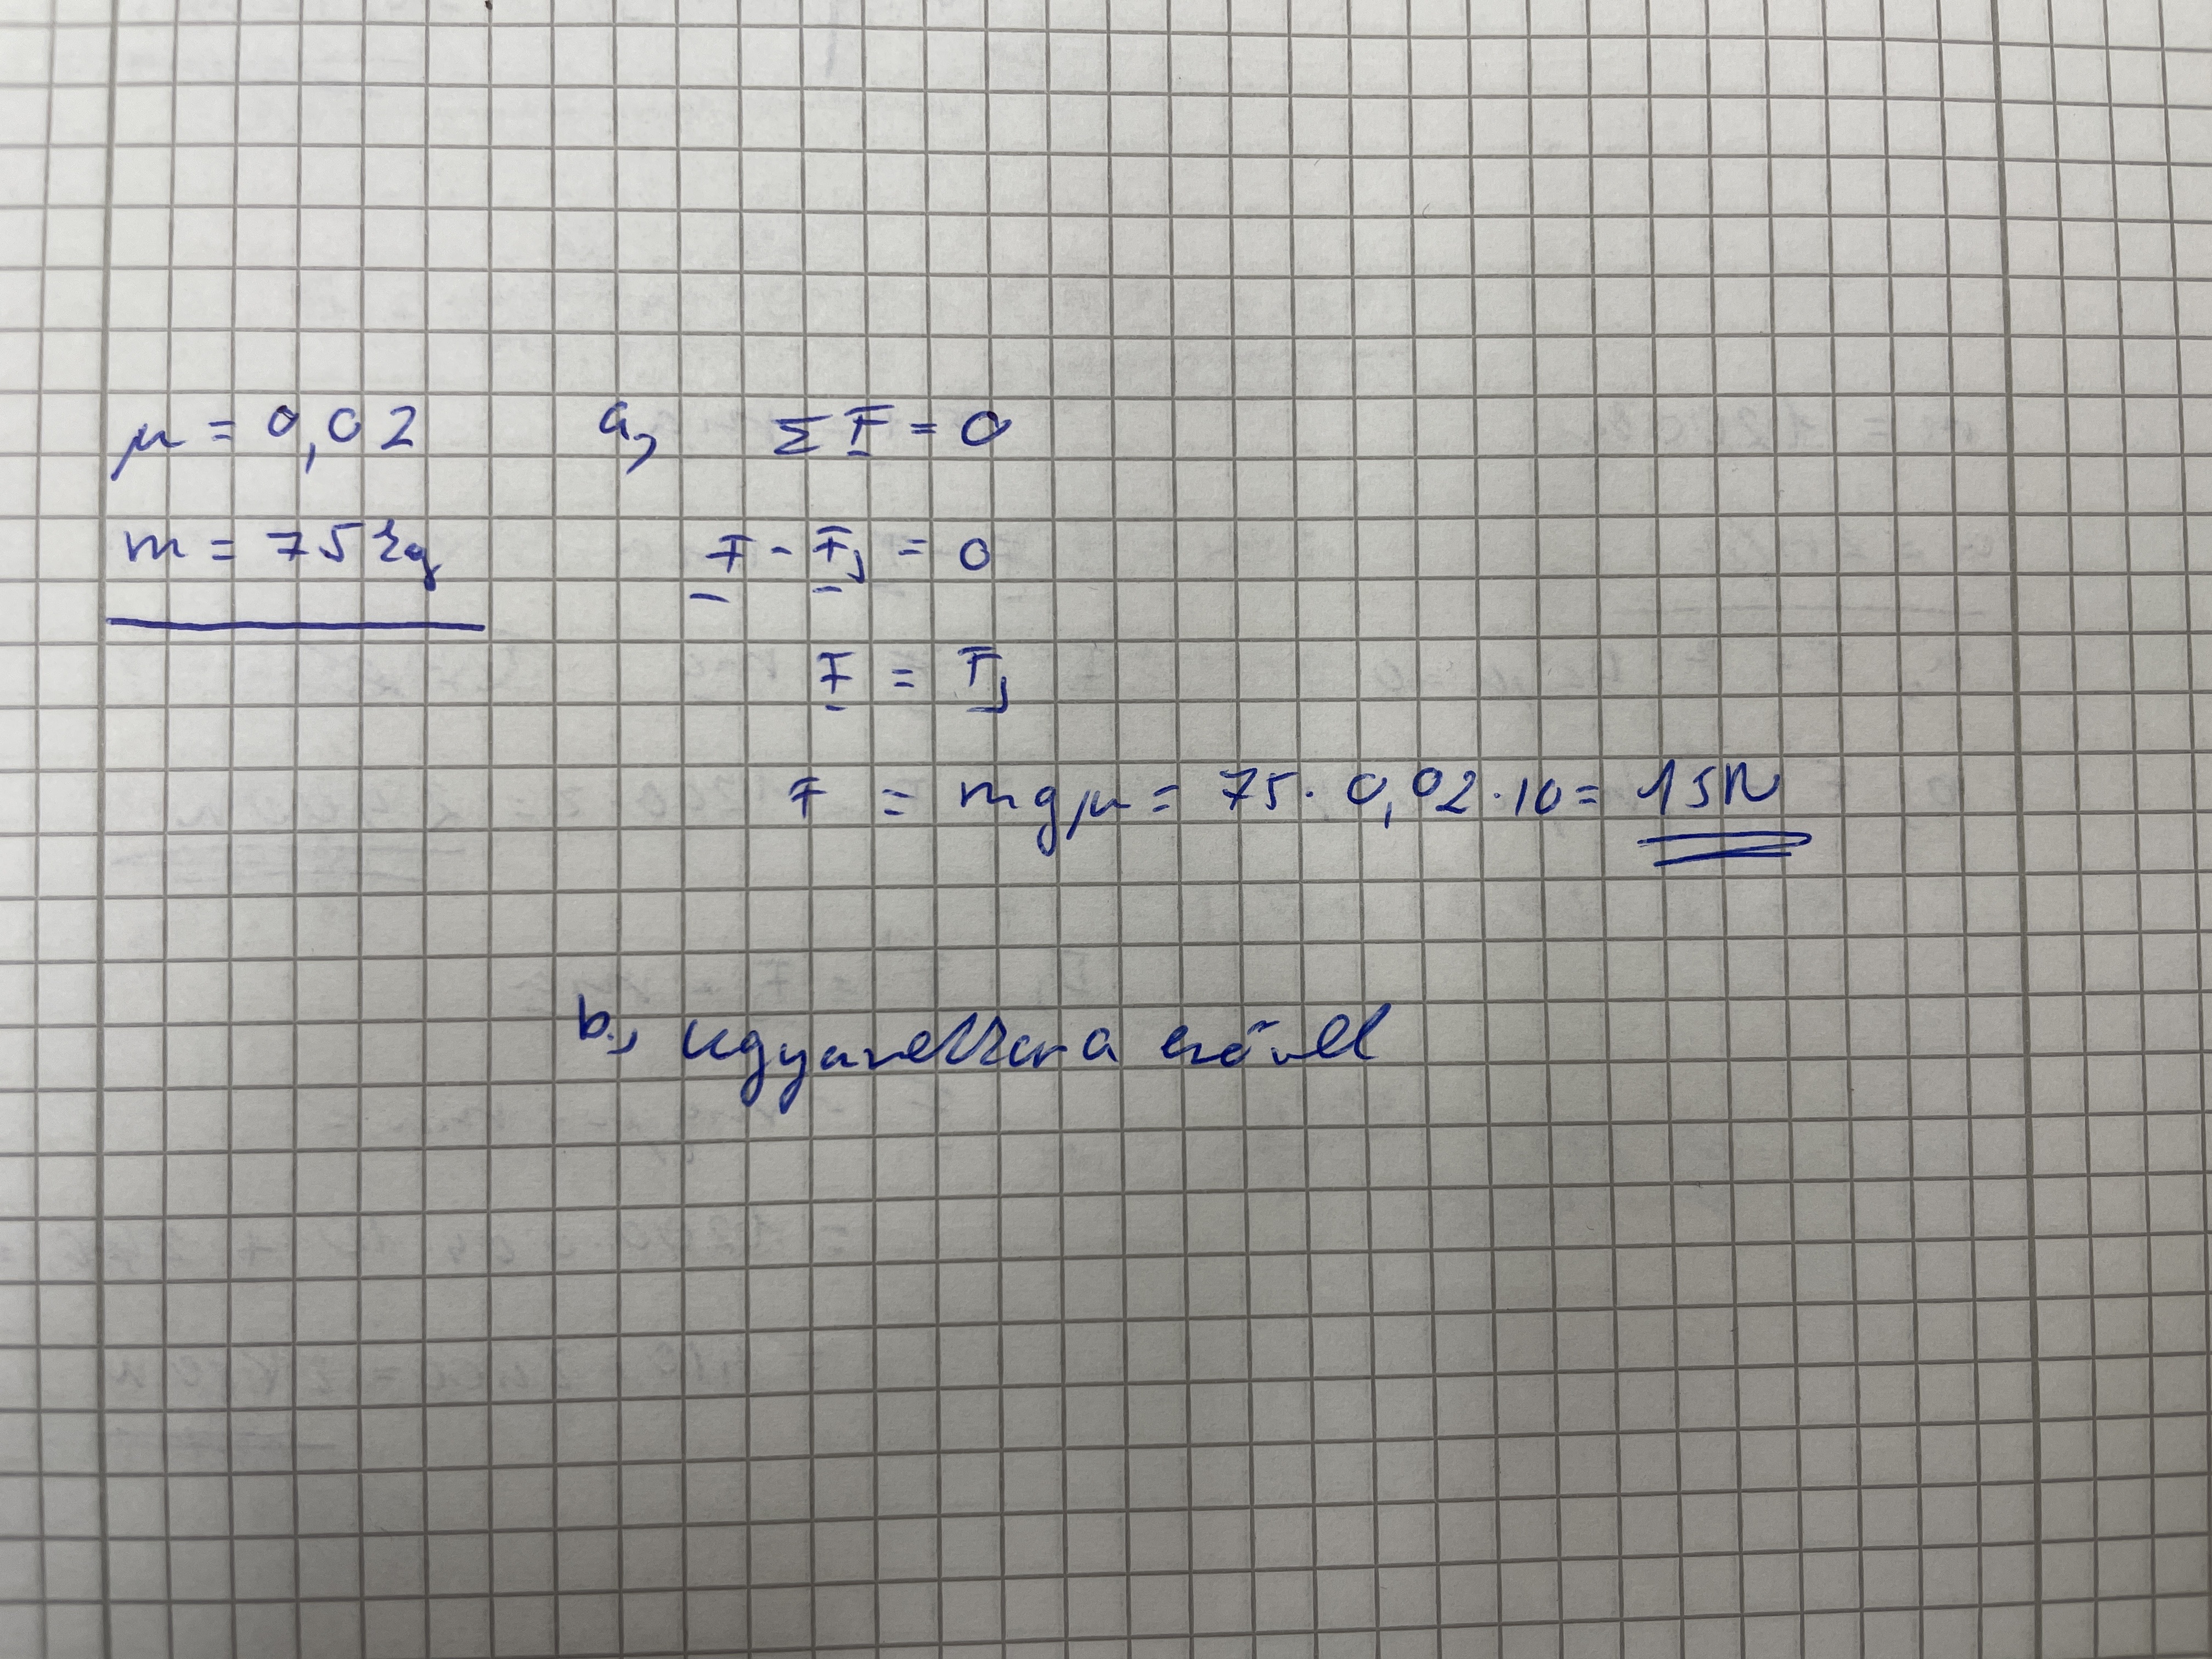 μ = 0,02
m = 75 kg
a, Σ F = 0
F - Fs = 0
F = Fs
F = mgμ = 75 · 0,02 · 10 = 15N
b., ugyanekkora erővel